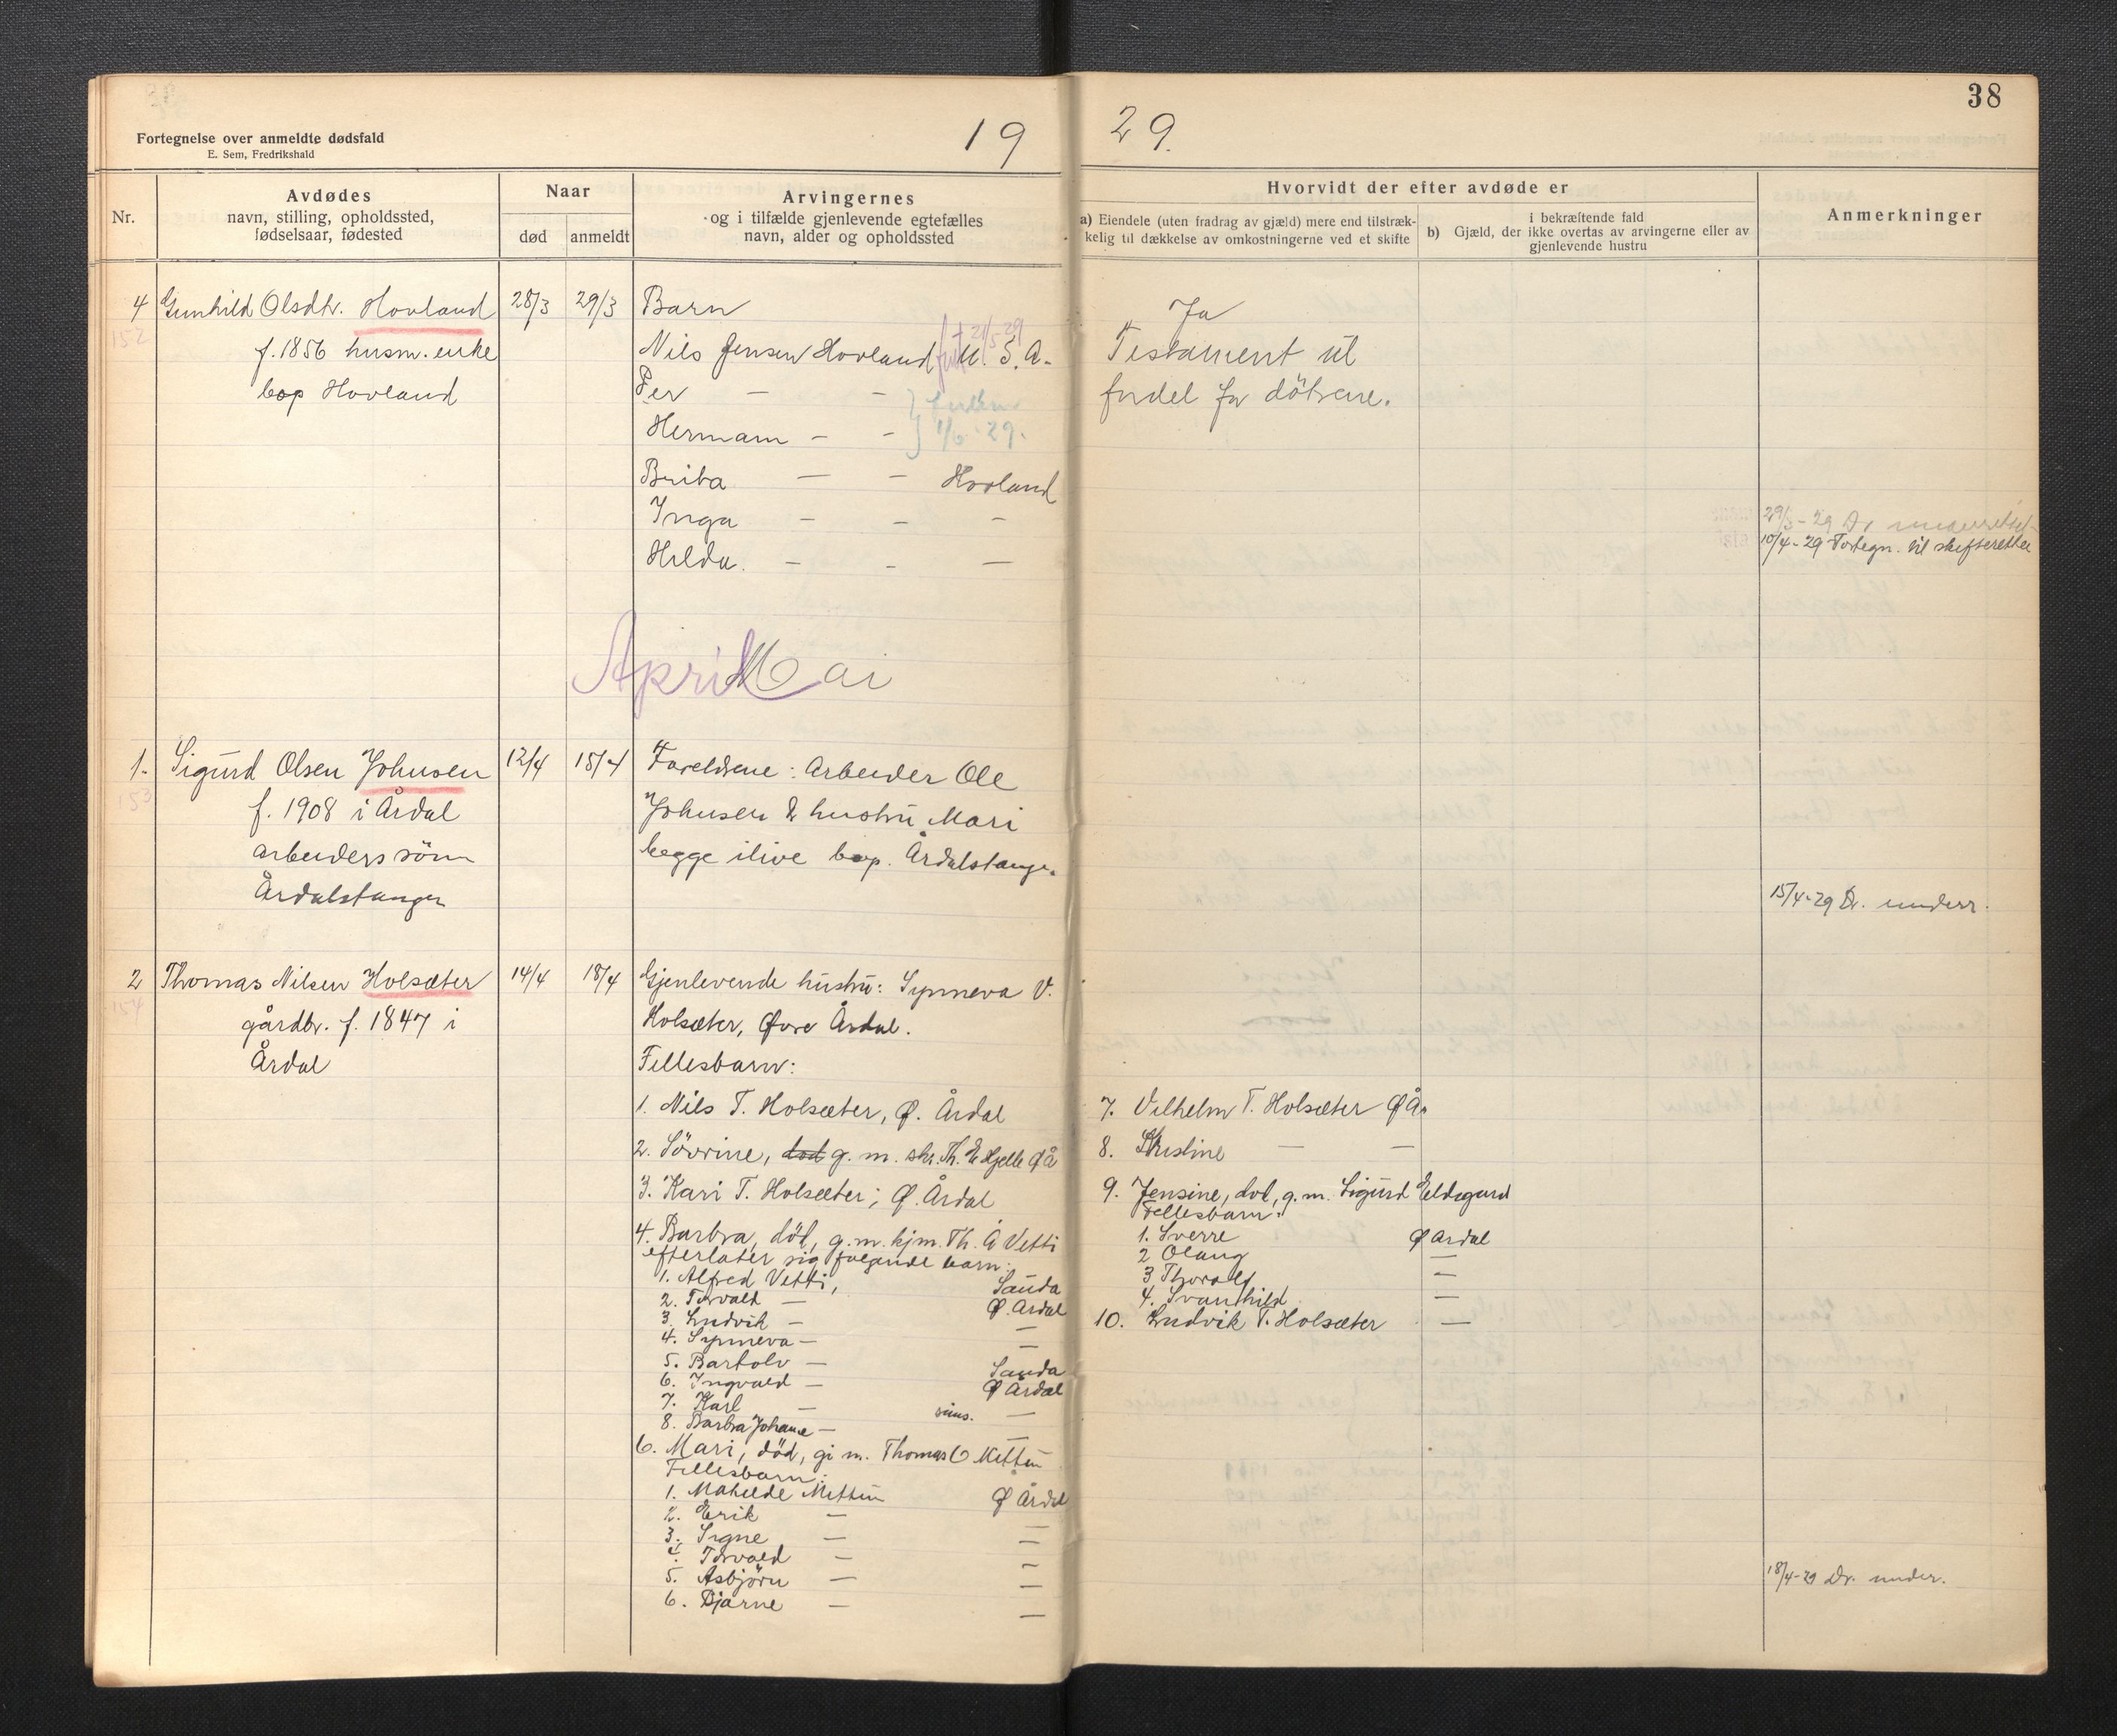 38
Fortegnelse over anmeldte dødsfald
E. Sem, Fredrikshald
19 29.
Nr.
Avdødes
navn, stilling, opholdssted,
fødselsaar, fødested
Naar
død
anmeldt
Arvingernes
og i tilfælde gjenlevende egtefælles
navn, alder og opholdssted
Hvorvidt der efter avdøde er
a) Eiendele (uten fradrag av gjæld) mere end tilstræk-
kelig til dækkelse av omkostningerne ved et skifte
i bekræftende fald
b) Gjæld, der ikke overtas av arvingerne eller av
gjenlevende hustru
Anmerkninger
4 Gunhild Olsdtr. Hovland 28/3 29/3
152
f. 1856 husm. enke
bop Hovland
Barn
Nils Jensen Hovland U. S. A.
Per — —
Hermann — —
1/6 - 29.
Brita — — Hovland
Inga — — —
Hilda. — — —
Ja
Testament til
fordel for dötrene.
10/4-29 Fortegn. til skifteretten
April Mai
1. Sigurd Olsen Johnsen 12/4 15/4
153
f. 1908 i Årdal
arbeiders sönn
Årdalstangen
Foreldrene: Arbeider Ole
Johnsen & hustru Mari
begge ilive bop. Årdalstangen
15/4-29 Dr. underr.
2 Thomas Nilsen Holsæter 14/4 18/4
154
gårdbr. f. 1847 i
Årdal
Gjenlevende hustru: Synneva V.
Holsæter, Øvre Årdal.
Fellesbarn:
1. Nils T. Holsæter, Ø. Årdal
2. Sövrine, död g. m. skr. Th. E Hjelle Ø Å
3. Kari T. Holsæter; Ø. Årdal
4. Barbra, död, g. m. kjm. Th. Å Vetti
efterlater sig følgende barn:
1. Alfred Vetti, Sauda
2. Torvald — Ø. Årdal
3. Ludvik — —
4. Synneva — —
5. Bartolv — Sauda
6. Ingvald — Ø Årdal
7. Karl — —
8. Barbra Johanne — —
6. Mari, död, g. m. Thomas O Mettin
Fellesbarn:
1. Mathilde Mettin Ø Årdal
2. Erik — —
3. Signe — —
4. Torvald — —
5. Asbjörn — —
6. Bjarne — —
7. Vilhelm T. Holsæter Ø Å.
8. Kristine — —
9. Jensine, död, g. m. Sigurd Eldegard
Fellesbarn:
1. Sverre Ø Årdal
2 Olaug —
3 Thorald —
4. Svanhild —
10. Ludvik T. Holsæter —
18/4-29 Dr. under.